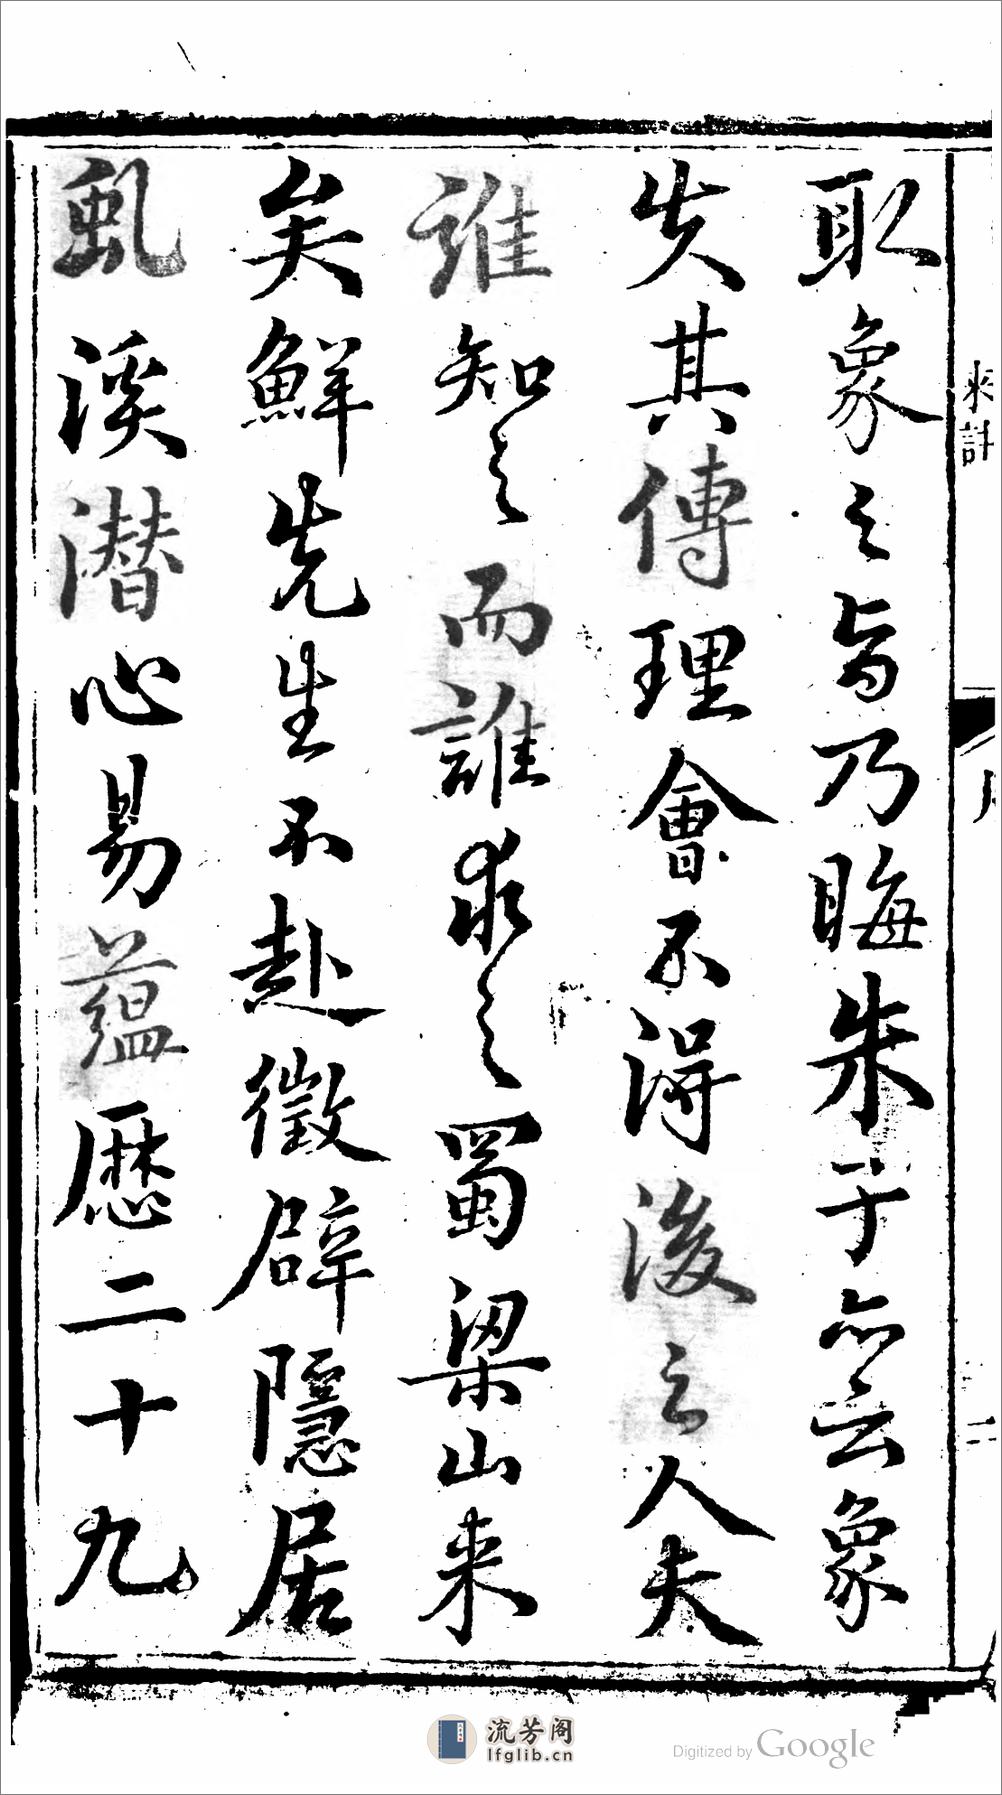 取象之旨乃晦朱子亦云象
失其傳理會不得後之人夫
誰知之而誰求之蜀梁山来
矣鮮先生不赴徵辟隱居
虬溪潛心易蘊歷二十九
来註
二
流芳阁
lfglib.cn
Digitized by Google